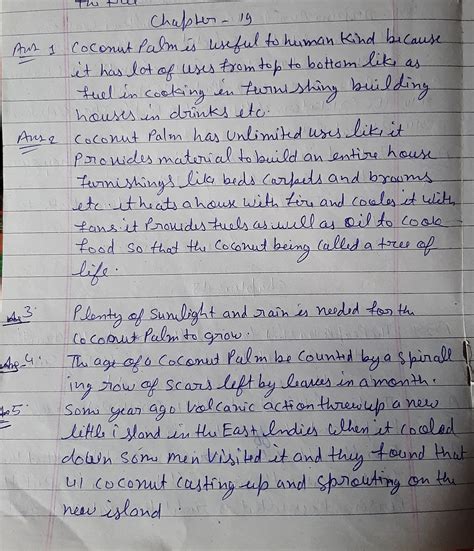 Chapter - 19
Ans 1 Coconut Palm is useful to human kind because
it has lot of uses from top to bottom like as
fuel in cooking in furnishing building
houses in drinks etc.
Ans 2 Coconut Palm has unlimited uses like it
Provides material to build an entire house
furnishings like beds carpets and brooms
etc. it heats a house with fire and cooles it with
fans it Provides fuels as well as oil to cook
food so that the coconut being called a tree of
life.
3: Plenty of Sunlight and rain is needed for the
Coconut Palm to grow.
4: The age of a Coconut Palm be Counted by a Spirall
ing row of Scars left by leaves in a month.
5: Some year ago Volcanic action threw up a new
little island in the East Indies When it cooled
down Some men Visited it and they found that
41 coconut Casting up and Sprouting on the
new island